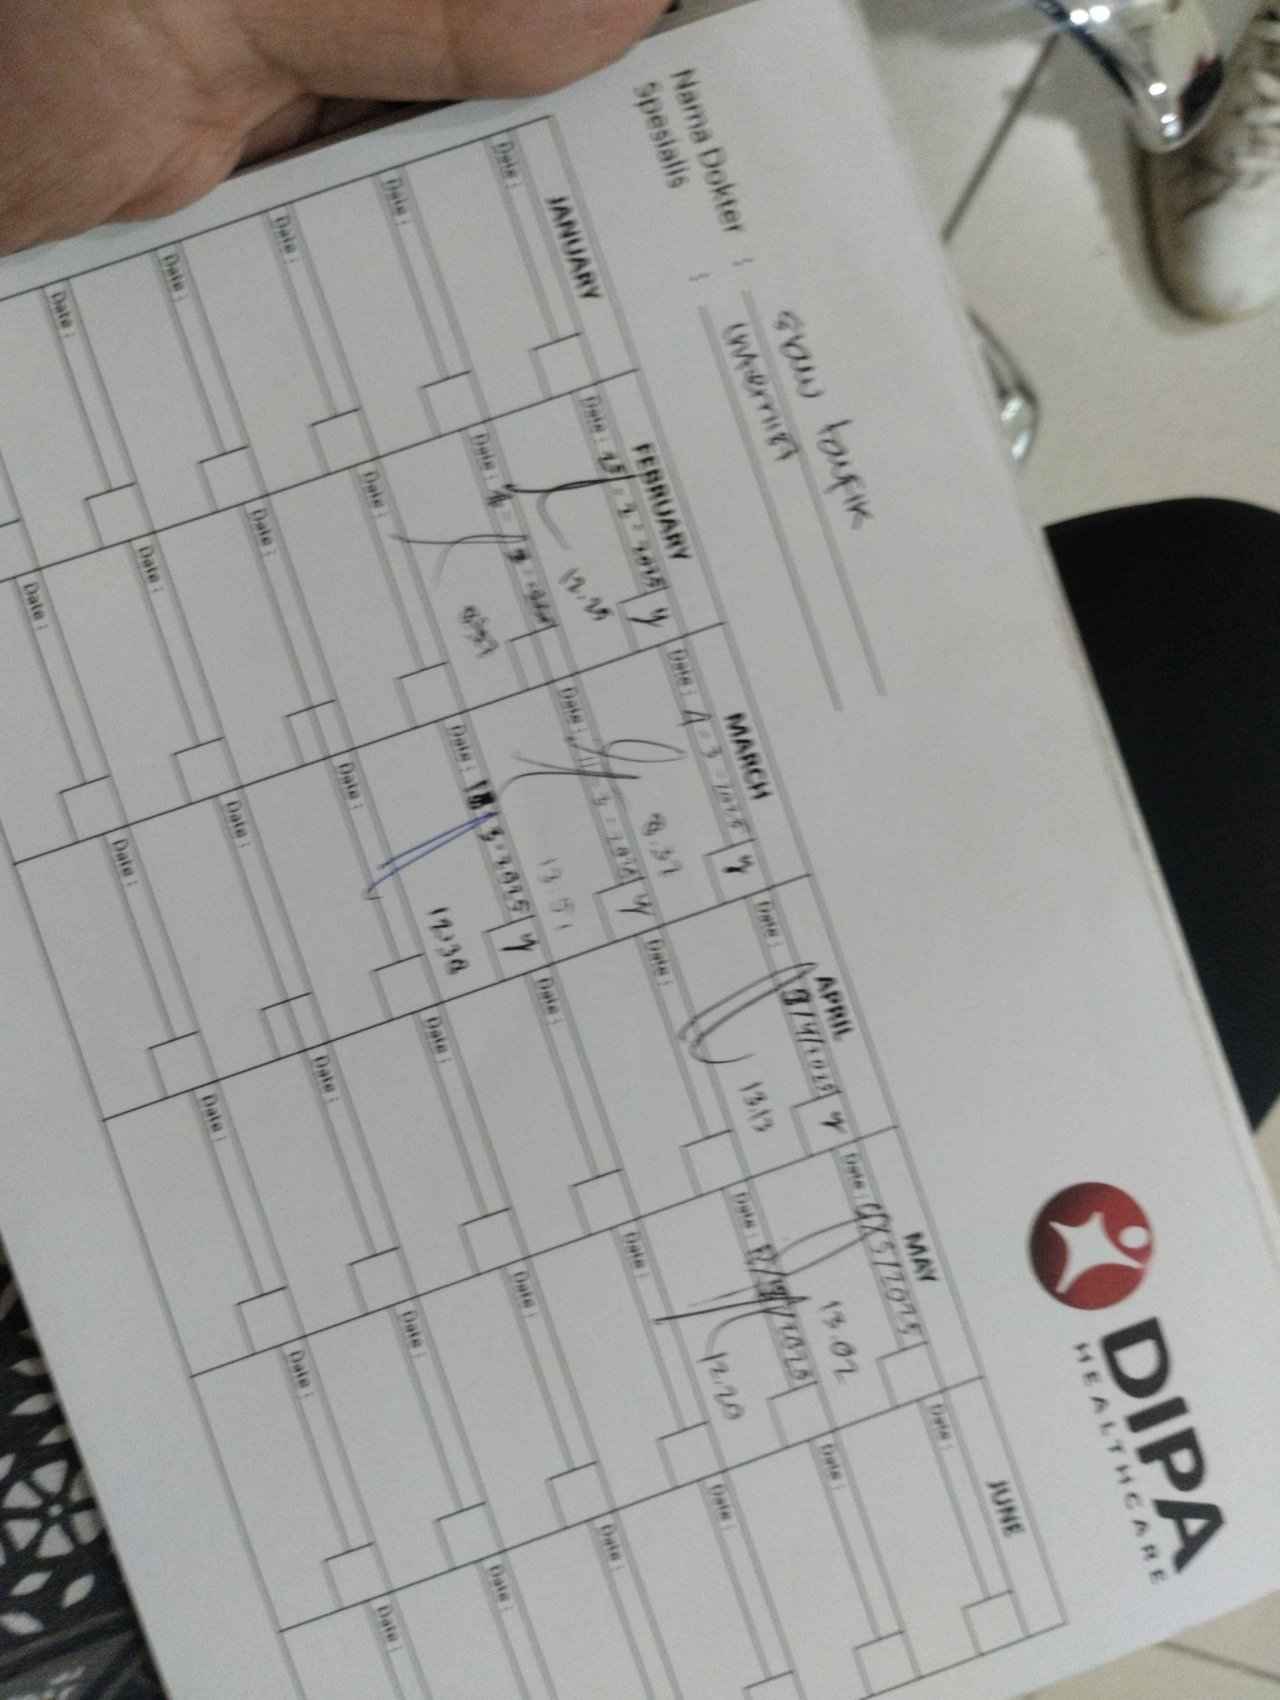 DIPA
HEALTHCARE
Nama Dokter :
Spesialis : Internist
JANUARY FEBRUARY MARCH APRIL MAY JUNE
Date : Date : 25 - 2 - 2025 y Date : 4 - 3 - 2025 y Date : 9/4/2025 y Date : Date :
12.29 8.37 13.13 13.02
Date : Date : Date : 3 - 2025 y Date : Date : Date :
13.51 12.20
Date : Date : Date : 18/3 - 2025 y Date : Date : Date :
12.38
Date : Date : Date : Date : Date : Date :
Date : Date : Date : Date : Date : Date :
Date : Date : Date : Date : Date :